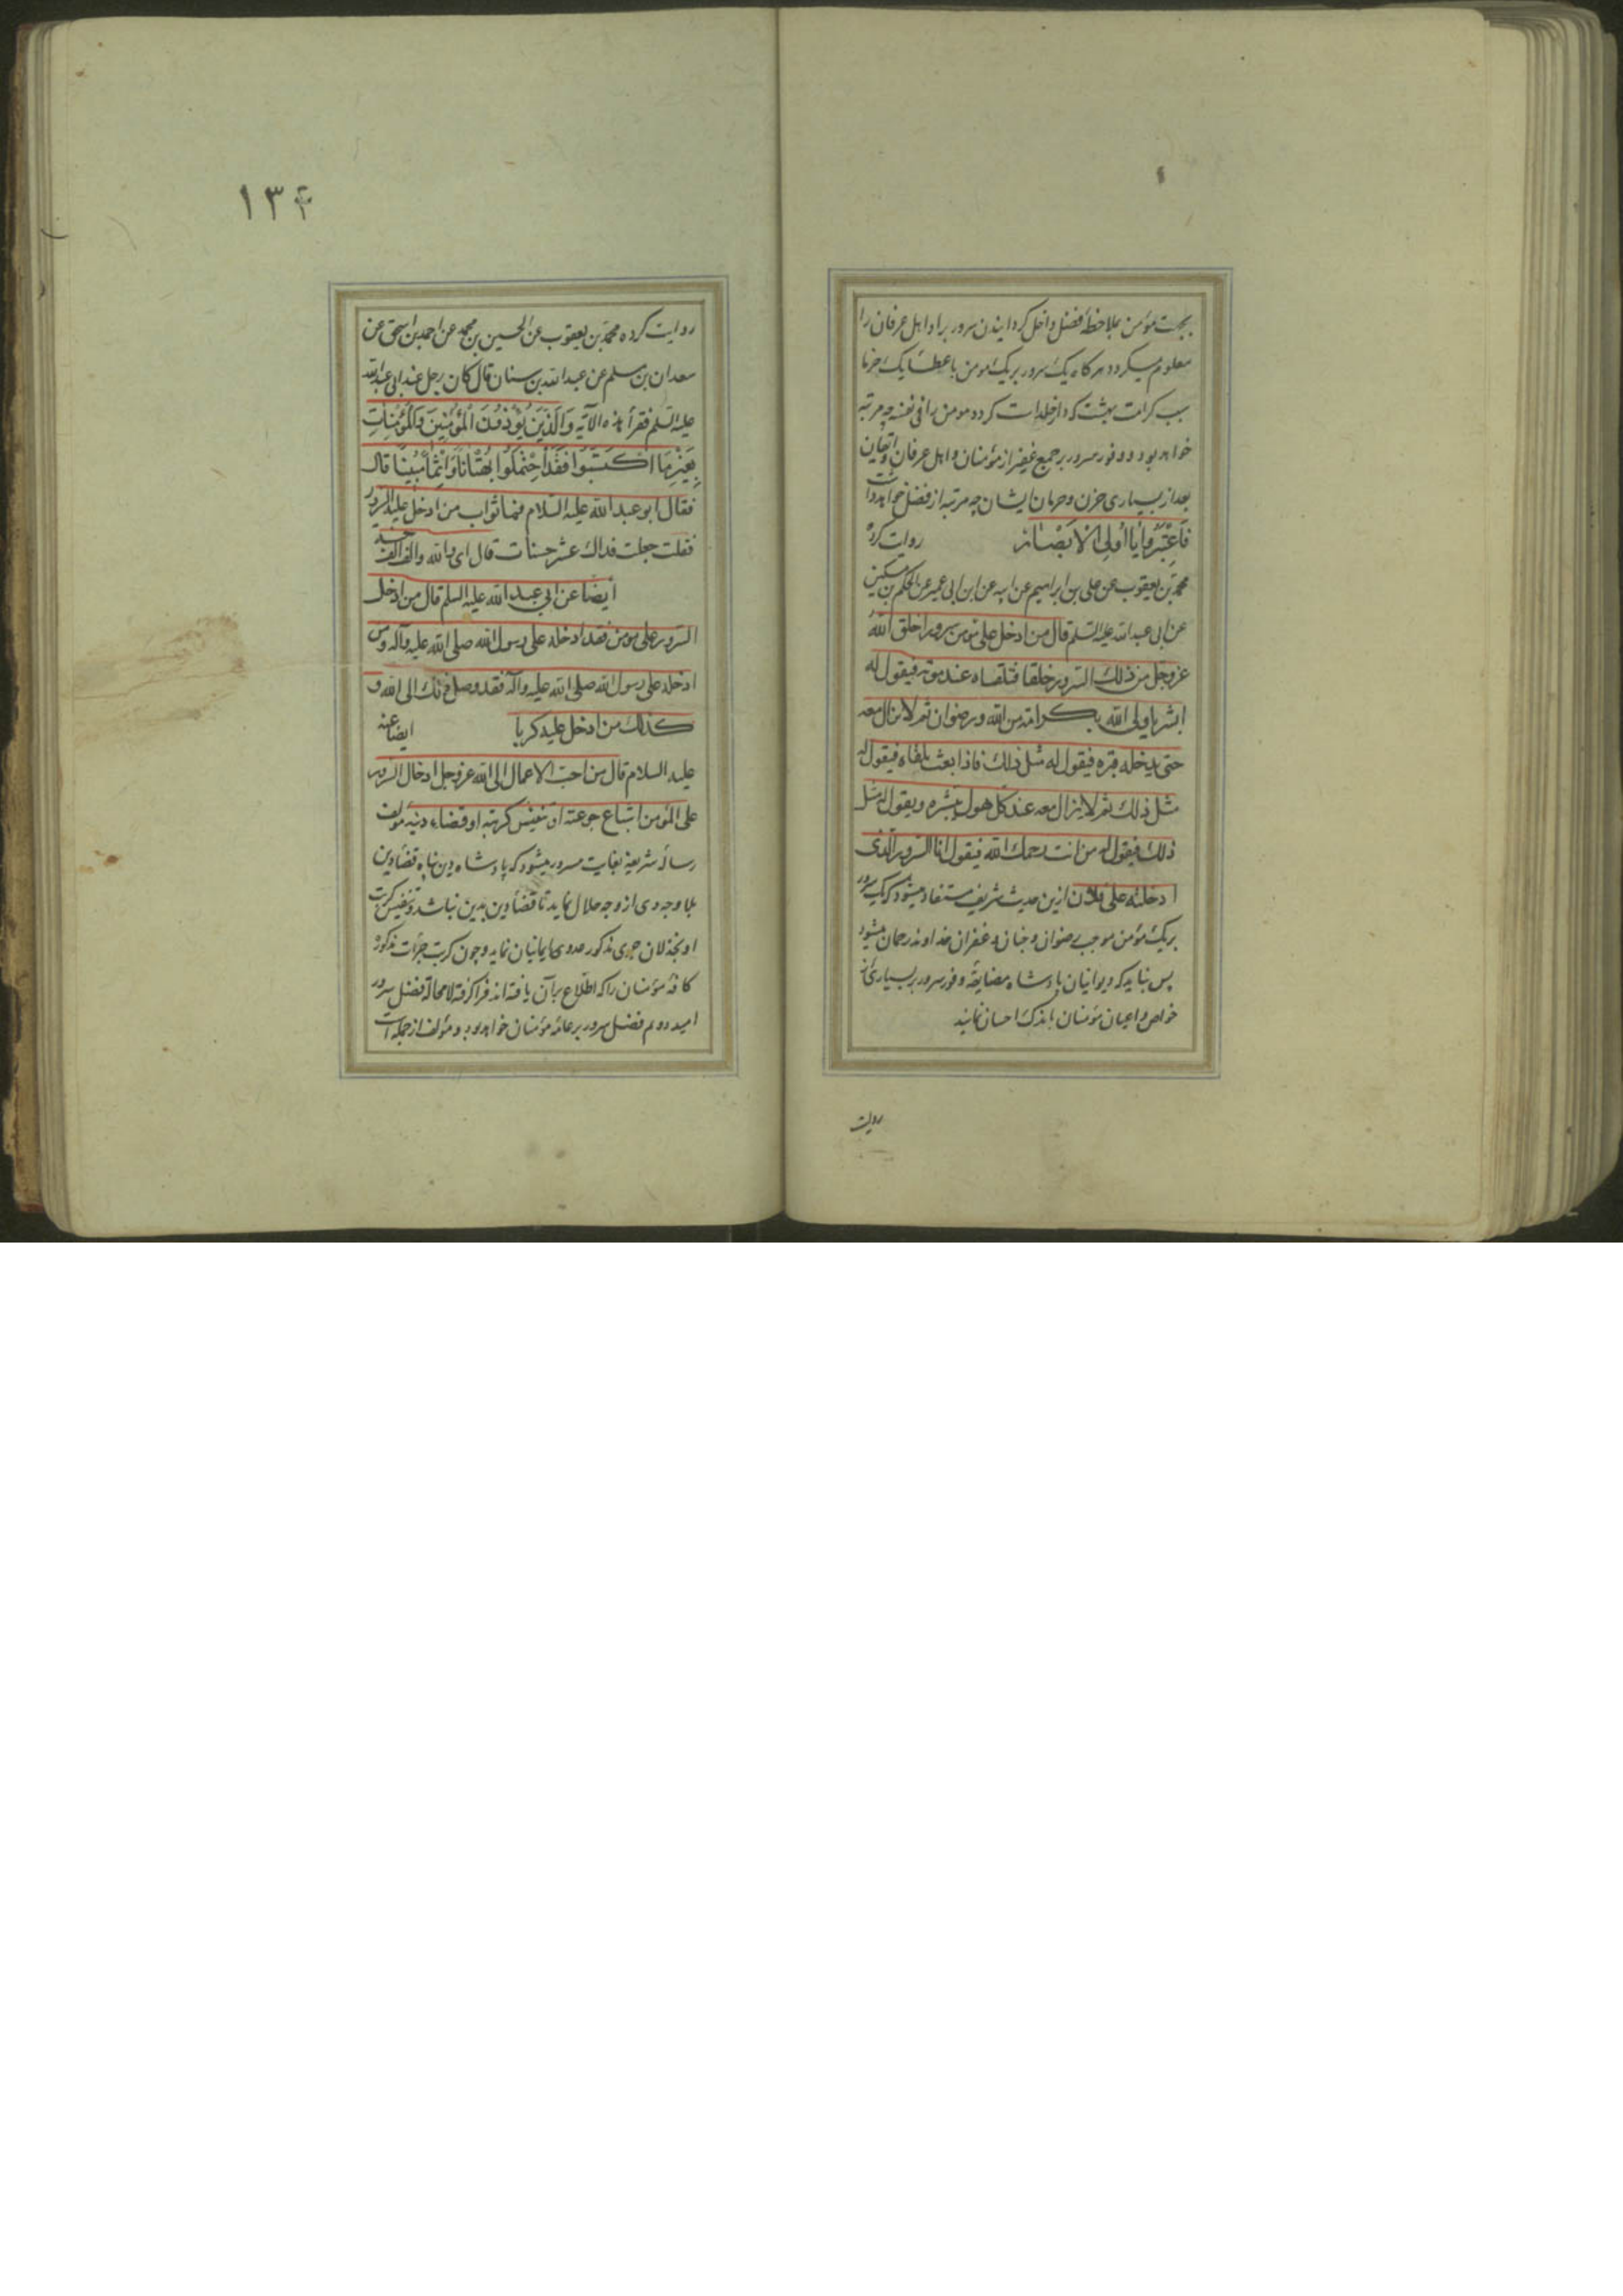 بجهت مؤمن بملاحظهٔ فضل داخل کردانیدن سرور برا و اهل عرفان را
معلوم میکردد هرکاه یک سرور بریک مومن با عطاء یک خرما
سبب کرامت بهشت که دار خلد است کردد مومن را فی نفسه چه مرتبه
خواهد بود و وفور سرور بر جمع غفیر از مؤمنان و اهل عرفان و ایقان
بعد از بسیاری حزن و حرمان ایشان چه مرتبه از فضل خواهد داشت
فَاعْتَبِرُوا یَا أُولِی الْأَبْصَارِ روایت کرده
محمد بن یعقوب عن علی بن ابراهیم عن ابیه عن ابن ابی عمیر عن الحکم بن مسکین
عن ابی عبدالله علیه السّلم قال من ادخل علی مومن سرورا خلق الله
عزوجل من ذلك السّرور خلقا فتلقاه عند موته فیقول له
ابشر یا ولی الله بکرامة من الله ورضوان ثم لا یزال معه
حتی یدخله قبره فیقول له مثل ذلك فاذا بعث یلقاه فیقول له
مثل ذلك ثم لا یزال معه عند کل هول یبشره ویقول له مثل
ذلك فیقول له من انت رحمك الله فیقول انا السّرور الّذی
ادخلته علی فلان ازین حدیث شریف مستفاد میشود که یک سرور
بریک مؤمن موجب رضوان و جنان و غفران خداوند رحمان میشود
پس نباید که دیوانیان پادشاه مضایقه وفور سرور بر بسیاری از
خواص و اعیان مؤمنان باندک احسان نمایند
روایت
۱۳۴
روایت کرده محمد بن یعقوب عن الحسین بن محمد عن احمد بن اسحق عن
سعدان بن مسلم عن عبدالله بن سنان قال کان رجل عند ابی عبدالله
علیه السّلم فقرأ هذه الآیه وَالَّذِینَ یُؤْذُونَ الْمُؤْمِنِینَ وَالْمُؤْمِنَاتِ
بِغَیْرِ مَا اکْتَسَبُوا فَقَدِ احْتَمَلُوا بُهْتَاناً وَإِثْماً مُبِیناً قال
فقال ابو عبدالله علیه السّلام فما ثواب من ادخل علیه السّرور
فقلت جعلت فداك عشر حسنات قال ای والله والف الف حسنه
أیضا عن ابی عبدالله علیه السلم قال من ادخل
السّرور علی مومن فقد ادخله علی رسول الله صلی الله علیه وآله ومن
ادخله علی رسول الله صلی الله علیه وآله فقد وصل ذلك الی الله و
کذلك من ادخل علیه کربا ایضا عنه
علیه السلام قال من احبّ الاعمال الی الله عزوجل ادخال السّرور
علی المؤمن اشباع جوعته او تنفیس کربته او قضاء دینه مؤلف
رساله شریفه بغایت مسرور میشود که پادشاه دین پناه قضا دین
بلا وجه وی از وجه حلال نماید تا قضا دین بدین نباشد و تنفیس کربت
او بخذلان جری مذکور عدوی ایمانیان نماید و چون کربت جرات مذکور
کافه مؤمنان را که اطّلاع بر آن یافته اند فرا کرفته لا محاله فضل سرور
امید دوم فضل سرور بر عامه مؤمنان خواهد بود و مؤلف از جمله است